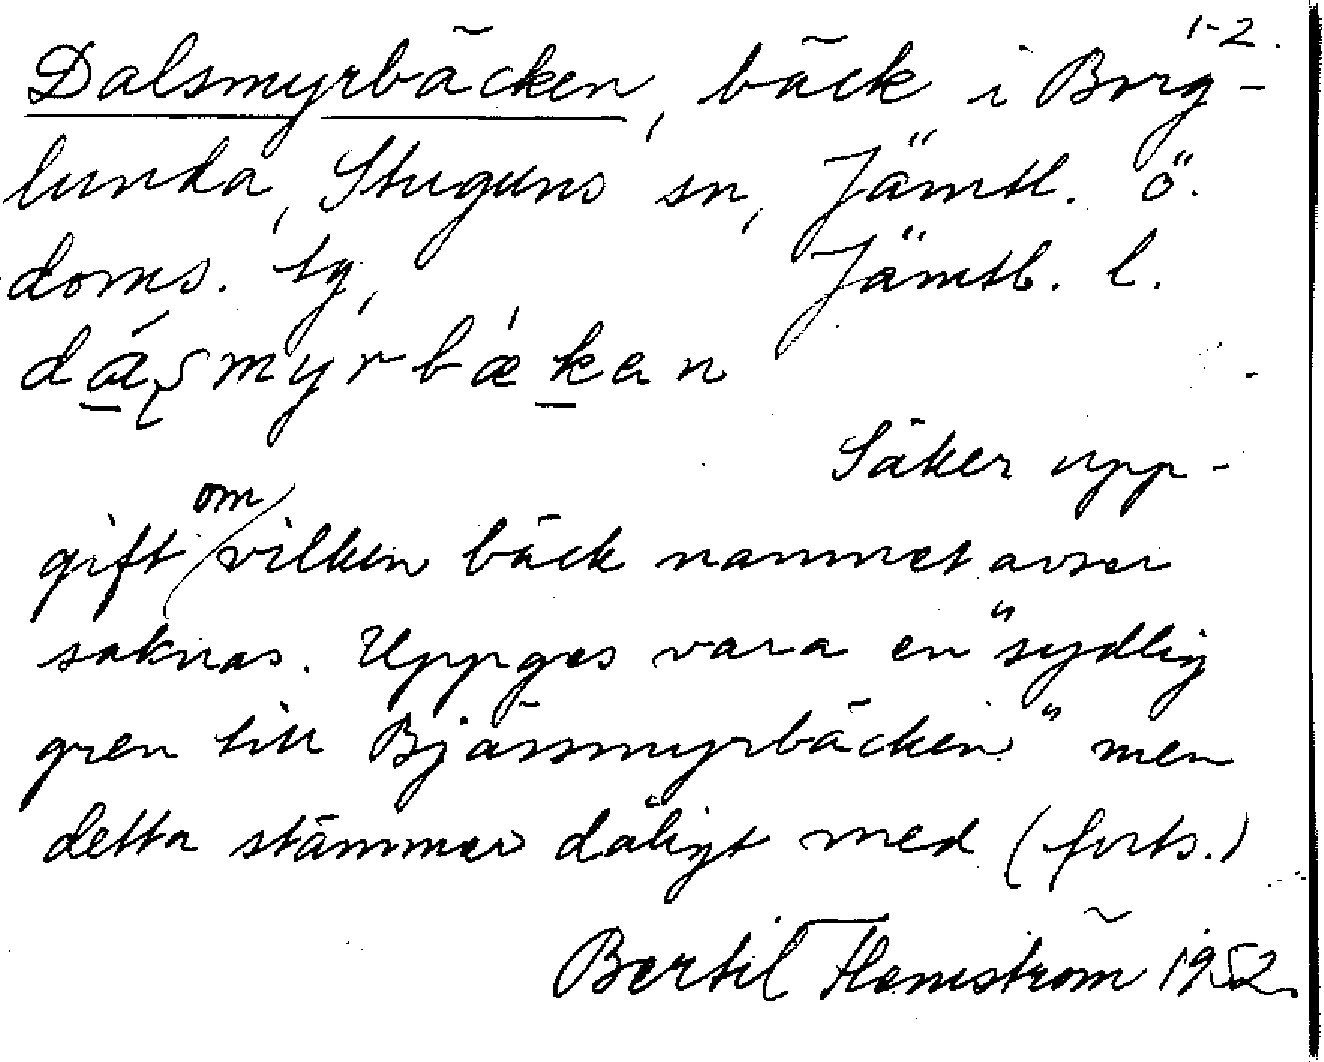 1-2.
Dalsmyrbäcken, bäck i Borg-
lunda, Stuguns sn, Jämtl. ö.
doms. tg, Jämtl. l.
myrbækan
Säker upp-
gift om vilken bäck namnet avser
saknas. Uppges vara en "sydlig
gren till Bjässmyrbäcken" men
detta stämmer dåligt med (forts.)
Bertil Flemström 1952.